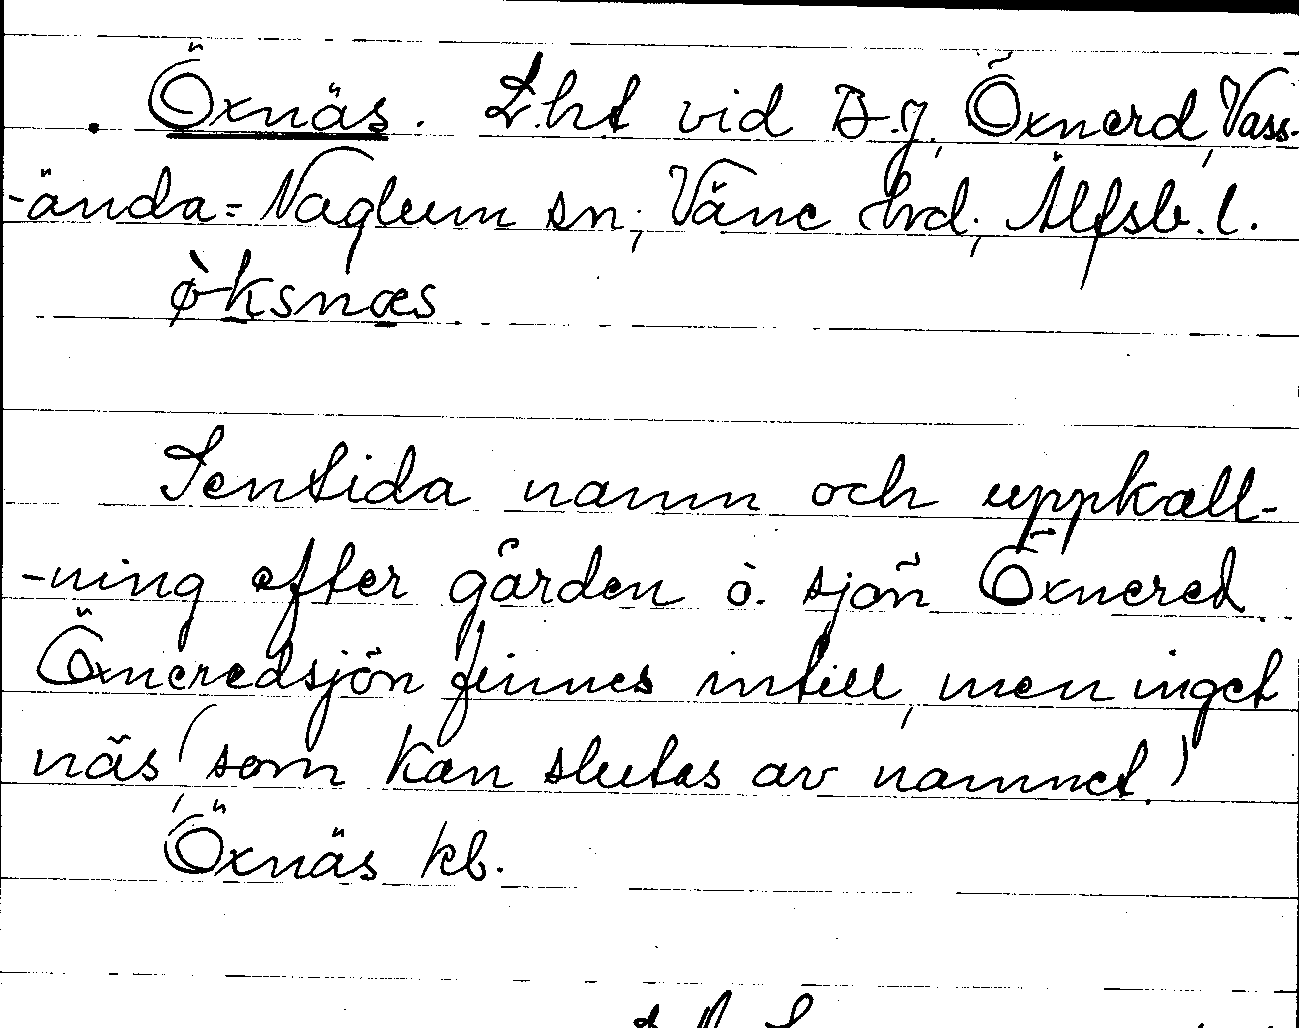 Öxnäs. Lht vid B.g. Öxnerd, Väss-
-ända=Naglum sn; Väne hrd; Älfsb. l.
ø̀ksnæs
Sentida namn och uppkall-
-ning efter gården o. sjön Öxnered.
Öxneredsjön finnes intill, men inget
näs (som kan slutas av namnet.)
Öxnäs kb.